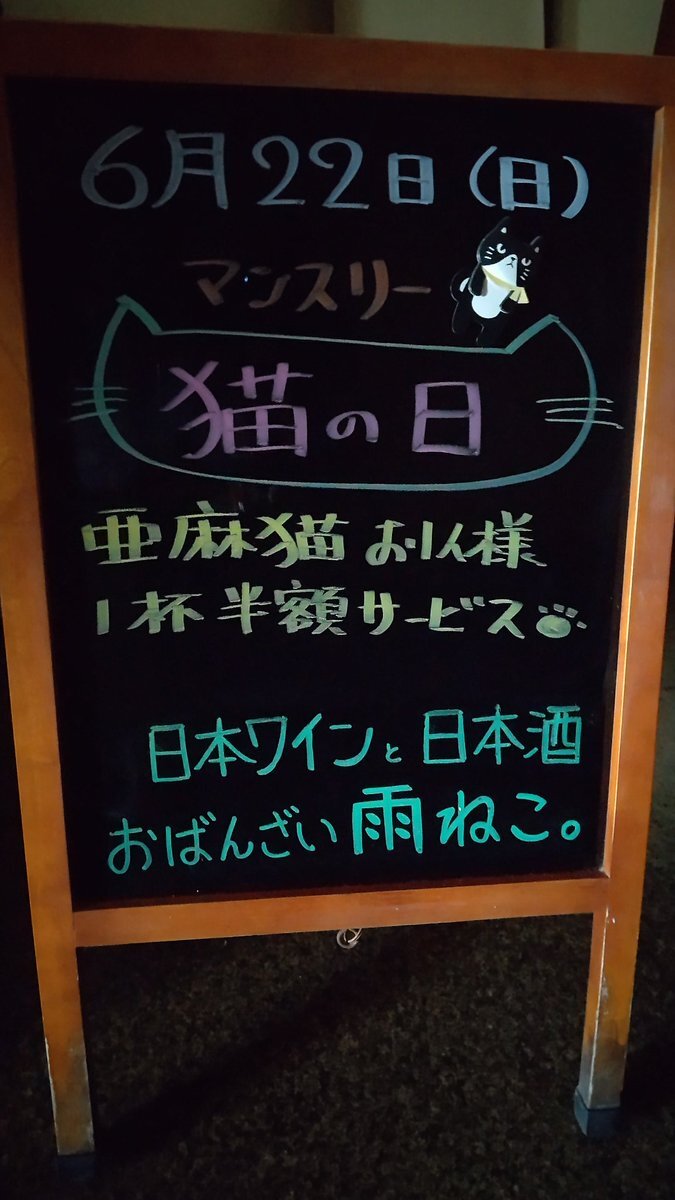 6月22日(日)
マンスリー
猫の日
亜麻猫 お1人様
1杯半額サービス
日本ワインと日本酒
おばんざい 雨ねこ。